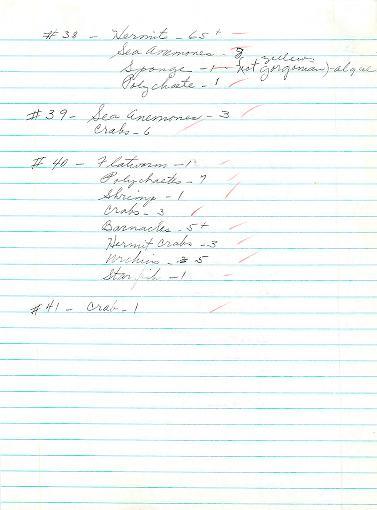 #38 - Hermit - 65+
Sea Anemones - 8
Sponge - 1 - yellow (not gorgonian) - algae
Polychaete - 1
#39 - Sea Anemones - 3
Crabs - 6
#40 - Flatworm - 1
Polychaetes - 7
Shrimp - 1
Crabs - 3
Barnacles - 5+
Hermit Crabs - 3
Urchins - 5
Starfish - 1
#41 - Crab - 1